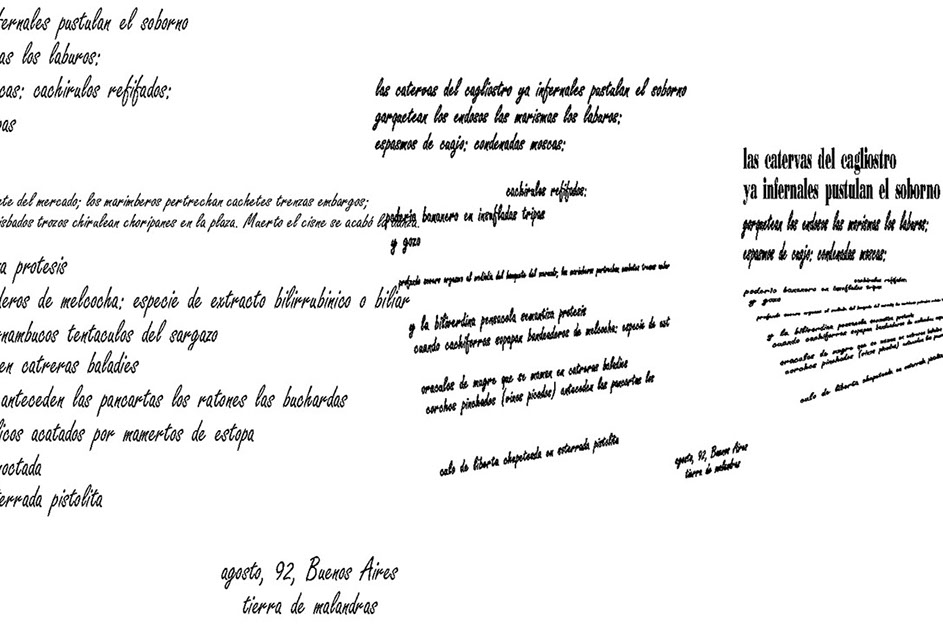 fernales pustulan el soborno
as los laburos:
cas: cachirulos refifados:
pas
ete del mercado; los marimberos pertrechan cachetes trenzas embargos;
isbados trozos chirulean choripanes en la plaza. Muerto el cisne se acabó la danza.
a protesis
deros de melcocha: especie de extracto bilirrubinico o biliar
rnambucos tentaculos del sargazo
en catreras baladies
anteceden las pancartas los ratones las buchardas
licos acatados por mamertos de estopa
octada
terrada pistolita
agosto, 92, Buenos Aires
tierra de malandras
las catervas del cagliostro ya infernales pustulan el soborno
garquetean los endosos las marismas los laburos:
espasmos de cuajo: condenadas moscas:
cachirulos refifados:
poderio bananero en insufladas tripas
y gozo
profundo oscuro organon el ordalia del banquete del mercado; los marimberos pertrechan cachetes trenzas sobor
y la biliverdina pensacola semantica protesis
cuando cachiforras espapan bandeaderos de melcocha: especie de ext
oracalos de magre que se maman en catreras baladies
corchos pinchados (vinos picados) anteceden las pancartas los
calo de liberta chapeteada en esterrada pistolita
agosto, 92, Buenos Aires
tierra de malandras
las catervas del cagliostro
ya infernales pustulan el soborno
garquetean los endosos las marismas los laburos:
espasmos de cuajo: condenadas moscas:
cachirulos refifados:
poderio bananero en insufladas tripas
y gozo
y la biliverdina pensacola semantica protesis
cuando cachiforras espapan bandeaderos de melcocha
oracalos de magre que se maman en catreras baladies
corchos pinchados (vinos picados) anteceden las pancartas los
calo de liberta chapeteada en esterrada pistolita